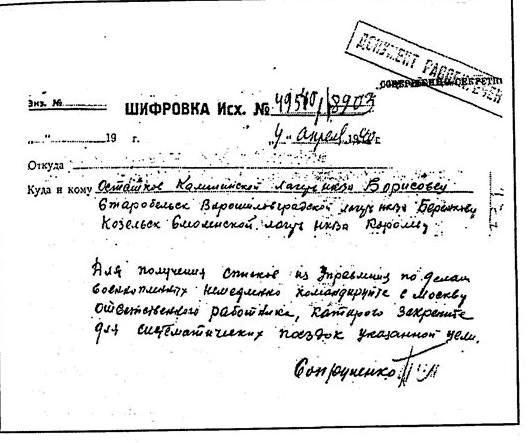 ДОКУМЕНТ РАССЕКРЕЧЕН
СОВЕРШЕННО СЕКРЕТНО
Экз. №
ШИФРОВКА Исх. № 49540/8903
„ “ 19 г. „4“ апреля 1940 г
Откуда
Куда и кому Осташков Калининской лагерь нквд Борисовцу
Старобельск Ворошиловградской лагерь нквд Бережкову
Козельск Смоленской лагерь нквд Королеву
Для получения списков из Управления по делам
военнопленных немедленно командируйте в Москву
ответственного работника, которого закрепите
для систематических поездок указанной цели.
Сопруненко